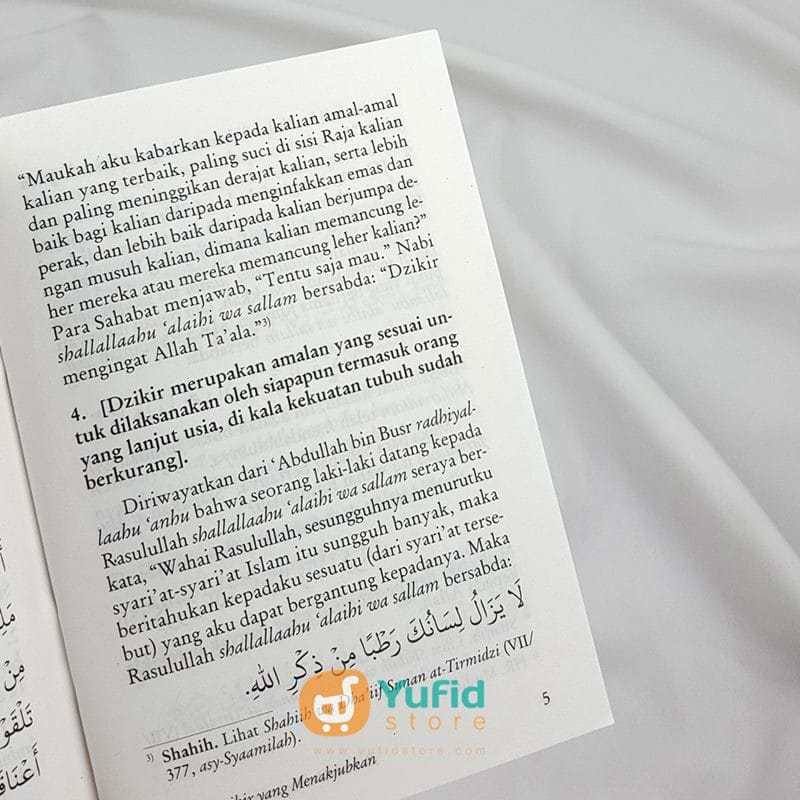 “Maukah aku kabarkan kepada kalian amal-amal
kalian yang terbaik, paling suci di sisi Raja kalian
dan paling meninggikan derajat kalian, serta lebih
baik bagi kalian daripada menginfakkan emas dan
perak, dan lebih baik daripada kalian berjumpa de-
ngan musuh kalian, dimana kalian memancung le-
her mereka atau mereka memancung leher kalian?”
Para Sahabat menjawab, “Tentu saja mau.” Nabi
shallallaahu ‘alaihi wa sallam bersabda: “Dzikir
mengingat Allah Ta’ala.”3)
4. [Dzikir merupakan amalan yang sesuai un-
tuk dilaksanakan oleh siapapun termasuk orang
yang lanjut usia, di kala kekuatan tubuh sudah
berkurang].
Diriwayatkan dari ‘Abdullah bin Busr radhiyal-
laahu ‘anhu bahwa seorang laki-laki datang kepada
Rasulullah shallallaahu ‘alaihi wa sallam seraya ber-
kata, “Wahai Rasulullah, sesungguhnya menurutku
syari’at-syari’at Islam itu sungguh banyak, maka
beritahukan kepadaku sesuatu (dari syari’at terse-
but) yang aku dapat bergantung kepadanya. Maka
Rasulullah shallallaahu ‘alaihi wa sallam bersabda:
لَا يَزَالُ لِسَانُكَ رَطْبًا مِنْ ذِكْرِ اللهِ.
3) Shahih. Lihat Shahiih wa Dha’iif Sunan at-Tirmidzi (VII/
377, asy-Syaamilah).
5
yang Menakjubkan
مِنْ
Yufid
store
www.yufidstore.com